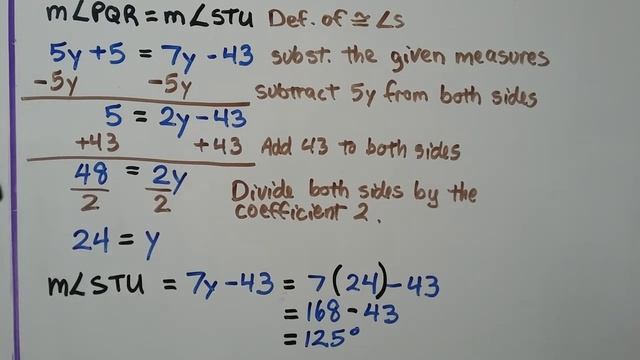 m∠PQR = m∠STU Def. of ≅ ∠s
5y + 5 = 7y - 43 subst. the given measures
-5y -5y subtract 5y from both sides
5 = 2y - 43
+43 +43 Add 43 to both sides
48 = 2y Divide both sides by the
2 2 coefficient 2.
24 = y
m∠STU = 7y - 43 = 7(24) - 43
= 168 - 43
= 125°